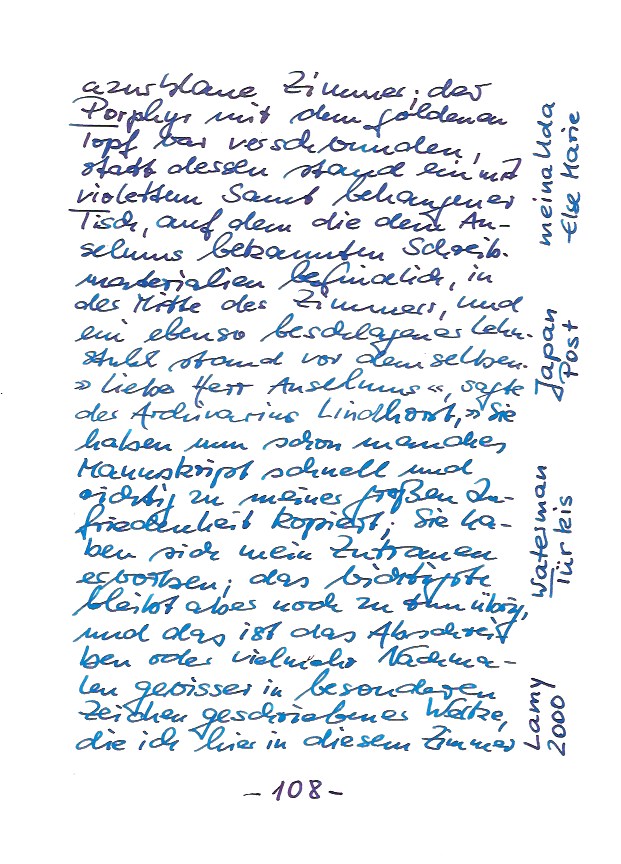 azurblaue Zimmer; der
Porphyr mit dem goldenen
Topf war verschwunden,
statt dessen stand ein mit
violettem Samt behangener
Tisch, auf dem die dem An-
selmus bekannten Schreib-
materialien befindlich, in
der Mitte des Zimmers, und
ein ebenso beschlagener Lehn-
stuhl stand vor demselben.
» Liebe Herr Anselmus «, sagte
der Archivarius Lindhorst, » Sie
haben nun schon manches
Manuskript schnell und
richtig zu meiner großen Zu-
friedenheit kopiert; Sie ha-
ben sich mein Zutrauen
erworben; das wichtigste
bleibt aber noch zu tun übrig,
und das ist das Abschrei
ben oder vielmehr Nachma-
len gewisser in besonderen
Zeichen geschriebener Werke,
die ich hier in diesem Zimmer
- 108 -
meina Uda
Else Marie
Japan
Post
Waterman
Türkis
Lamy
2000